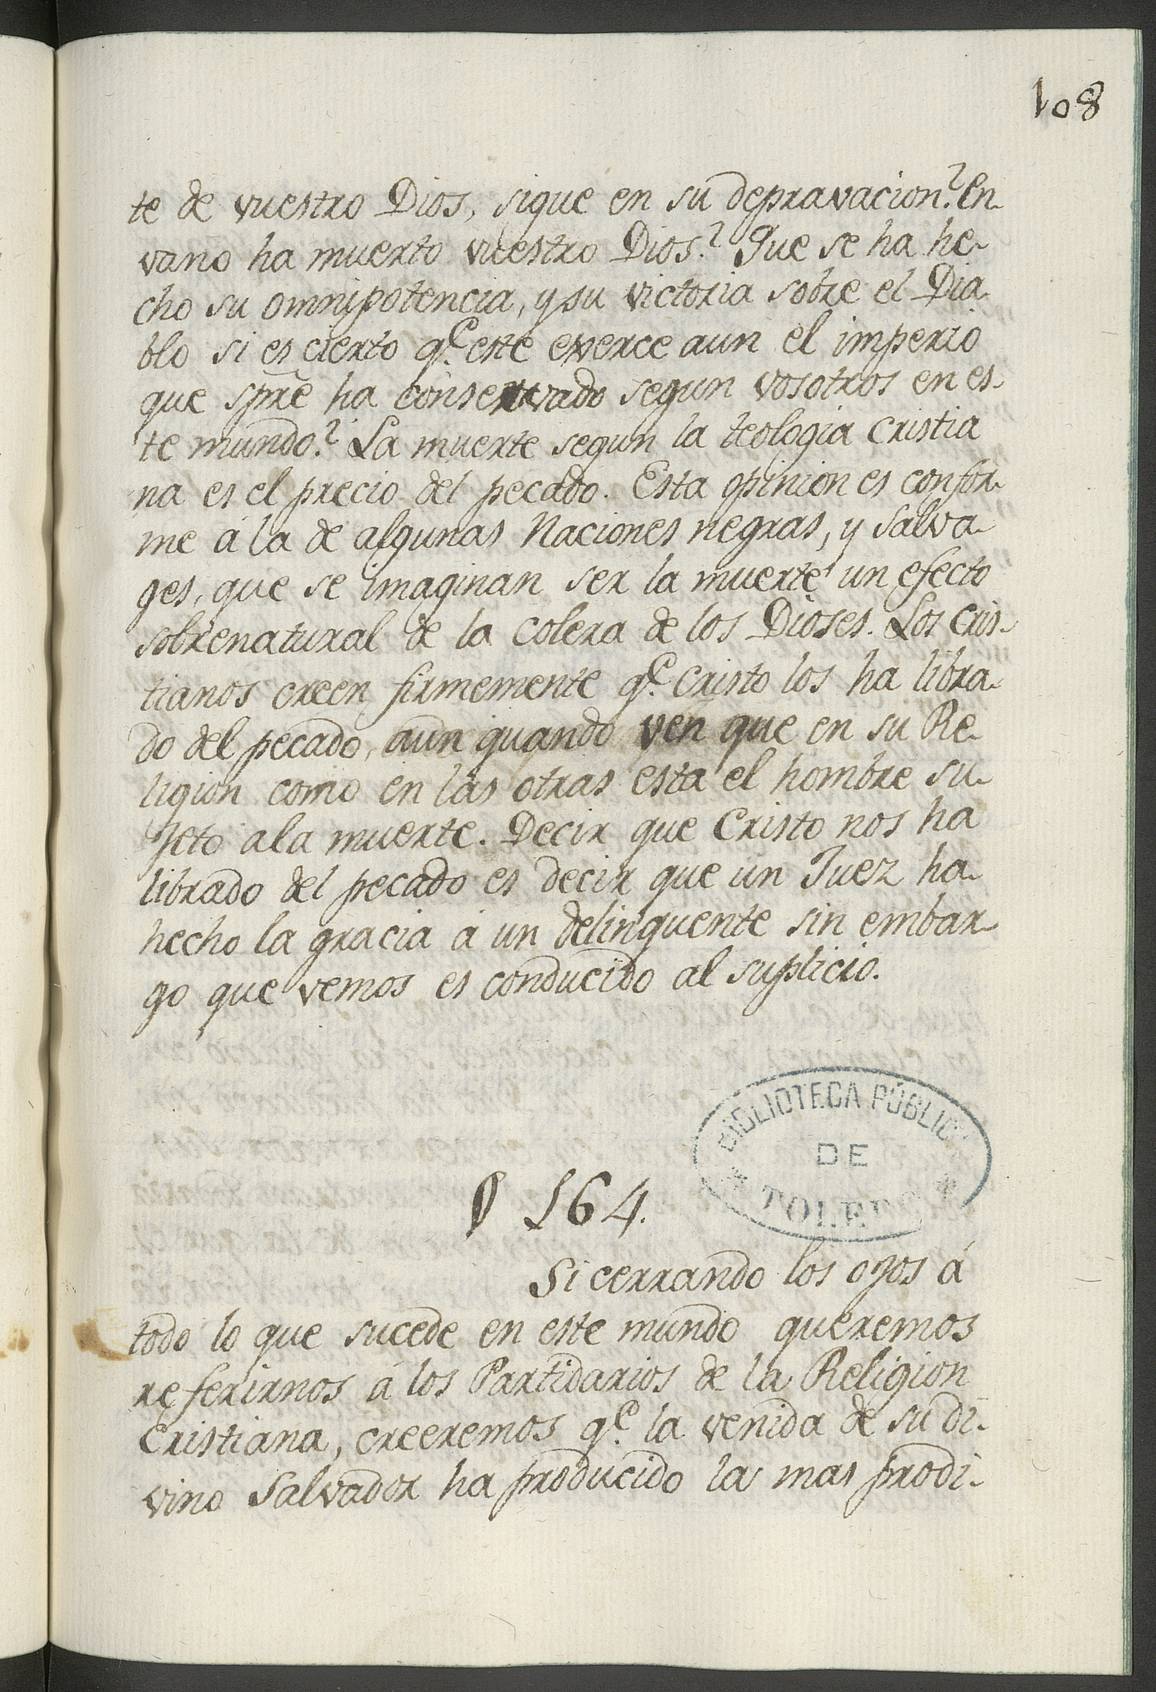 108
te de vuestro Dios, sigue en su depravacion? En
vano ha muerto vuestro Dios? Que se ha he-
cho su omnipotencia, y su victoria sobre el Dia
blo si es cierto q.e este exerce aun el imperio
que spre ha conservado segun vosotros en es-
te mundo? La muerte segun la teologia cristia
na es el precio del pecado. Esta opinion es confor-
me á la de algunas Naciones negras, y salva-
ges, que se imaginan ser la muerte un efecto
sobrenatural de la colera de los Dioses. Los cris-
tianos creen firmemente q.e Cristo los ha libra-
do del pecado, aun quando ven que en su Re-
ligion como en las otras esta el hombre su-
jeto a la muerte. Decir que Cristo nos ha
librado del pecado es decir que un Juez ha
hecho la gracia á un delinquente sin embar-
go que vemos es conducido al suplicio.
BIBLIOTECA PÚBLICA
DE
* TOLEDO *
§ 164.
Si cerrando los ojos á
todo lo que sucede en este mundo queremos
referirnos á los Partidarios de la Religion
Cristiana, creeremos q.e la venida de su di-
vino Salvador ha producido la mas prodi-